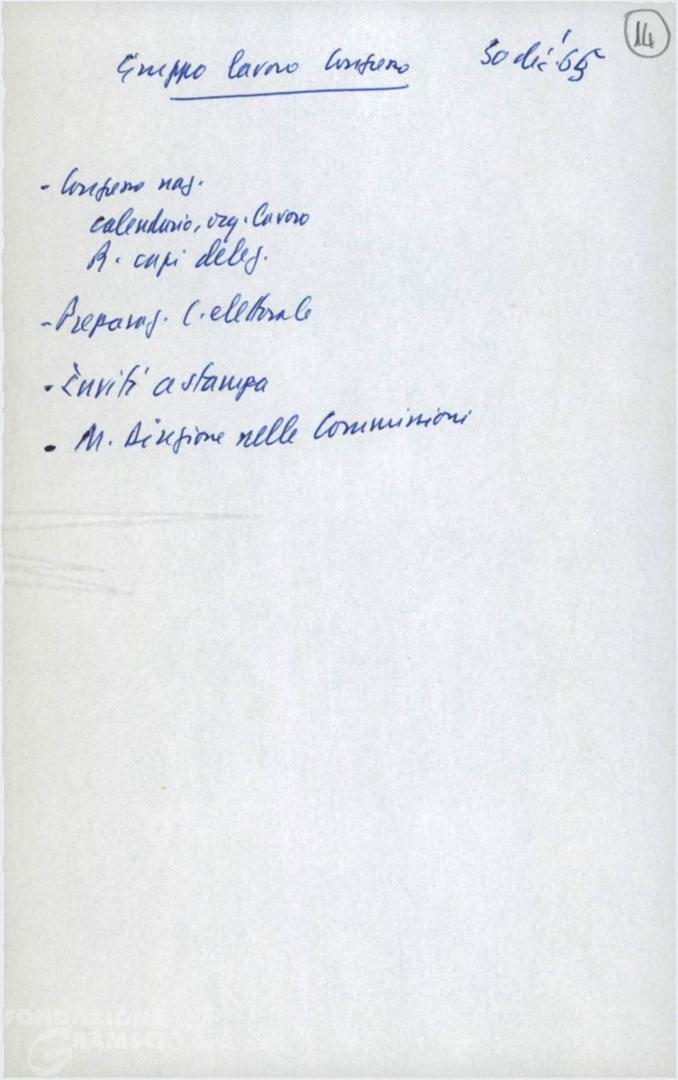 14
Gruppo lavoro Congresso 30 dic. '65
- Congresso naz.
calendario, org. lavoro
R. capi deleg.
- Preparaz. C. elettorale
- Inviti a stampa
- M. Direzione nelle Commissioni
FONDAZIONE
GRAMSCI